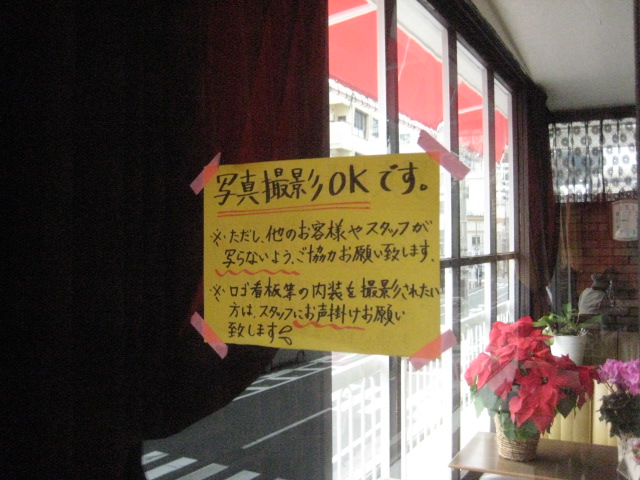 写真撮影OKです。
※ただし、他のお客様やスタッフが
写らないよう、ご協力お願い致します。
※ロゴ看板等の内装を撮影されたい
方は、スタッフにお声掛けお願い
致します